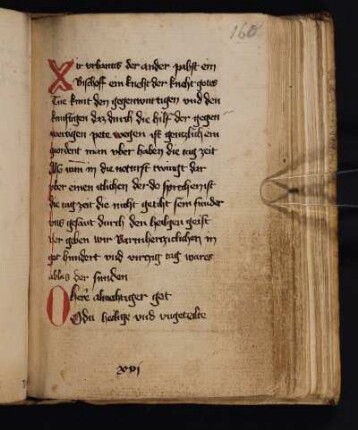 160
ir urbanus der ander pabst ein
Bischoff ein knecht der knecht gotes
Tue kunt den gegenwurtigen vnd den
kunftigen daz durch die hilf der gegen
wertigen pete wegen ist gentzlich ein
geordent man vber haben die tag zeit
in die noturft twingt dar
vber einen itlichen der do sprechen ist
die tag zeit die nicht geticht sein sunder
vns gesant durch den heiligen geist
der geben wir Barmhertziclichen in
got hundert vnd virtzig tag wares
ablas der sunden
O herr almechtiger got
O du heilige vnd vngeteilte
xvi